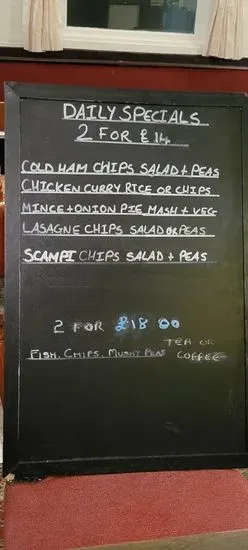 DAILY SPECIALS
2 FOR £14
COLD HAM CHIPS SALAD + PEAS
CHICKEN CURRY RICE OR CHIPS
MINCE + ONION PIE MASH + VEG
LASAGNE CHIPS SALAD OR PEAS
SCAMPI CHIPS SALAD + PEAS
2 FOR £18 00
TEA OR
FISH, CHIPS, MUSHY PEAS COFFEE